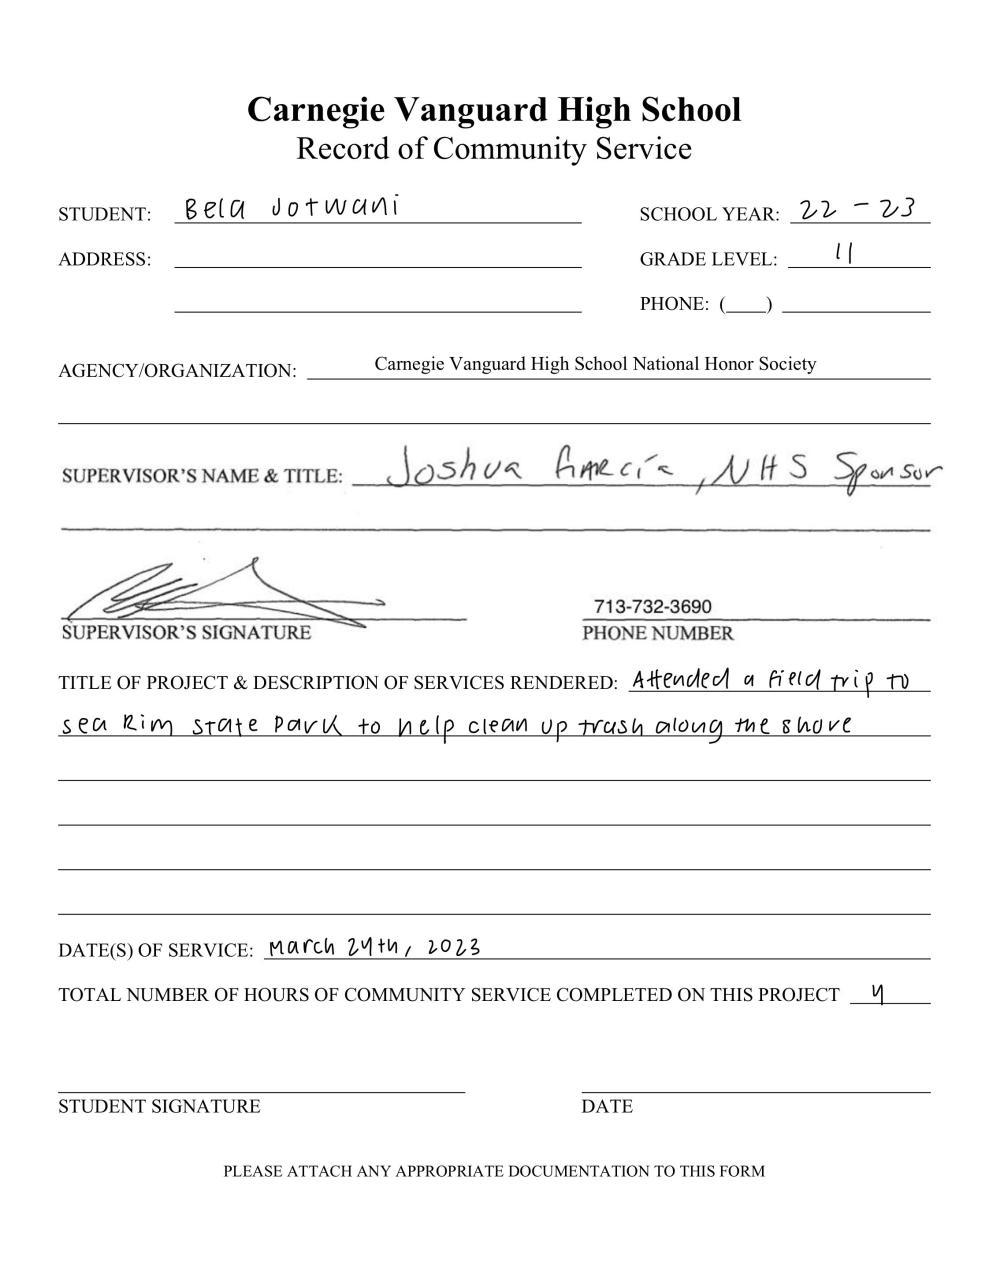 Carnegie Vanguard High School
Record of Community Service
STUDENT: Bela Jotwani SCHOOL YEAR: 22 - 23
ADDRESS: GRADE LEVEL: 11
PHONE: (___)
AGENCY/ORGANIZATION: Carnegie Vanguard High School National Honor Society
SUPERVISOR'S NAME & TITLE: Joshua García, NHS Sponsor
713-732-3690
SUPERVISOR'S SIGNATURE PHONE NUMBER
TITLE OF PROJECT & DESCRIPTION OF SERVICES RENDERED: Attended a field trip to
sea Rim State Park to help clean up trash along the shore
DATE(S) OF SERVICE: March 24th, 2023
TOTAL NUMBER OF HOURS OF COMMUNITY SERVICE COMPLETED ON THIS PROJECT 4
STUDENT SIGNATURE DATE
PLEASE ATTACH ANY APPROPRIATE DOCUMENTATION TO THIS FORM